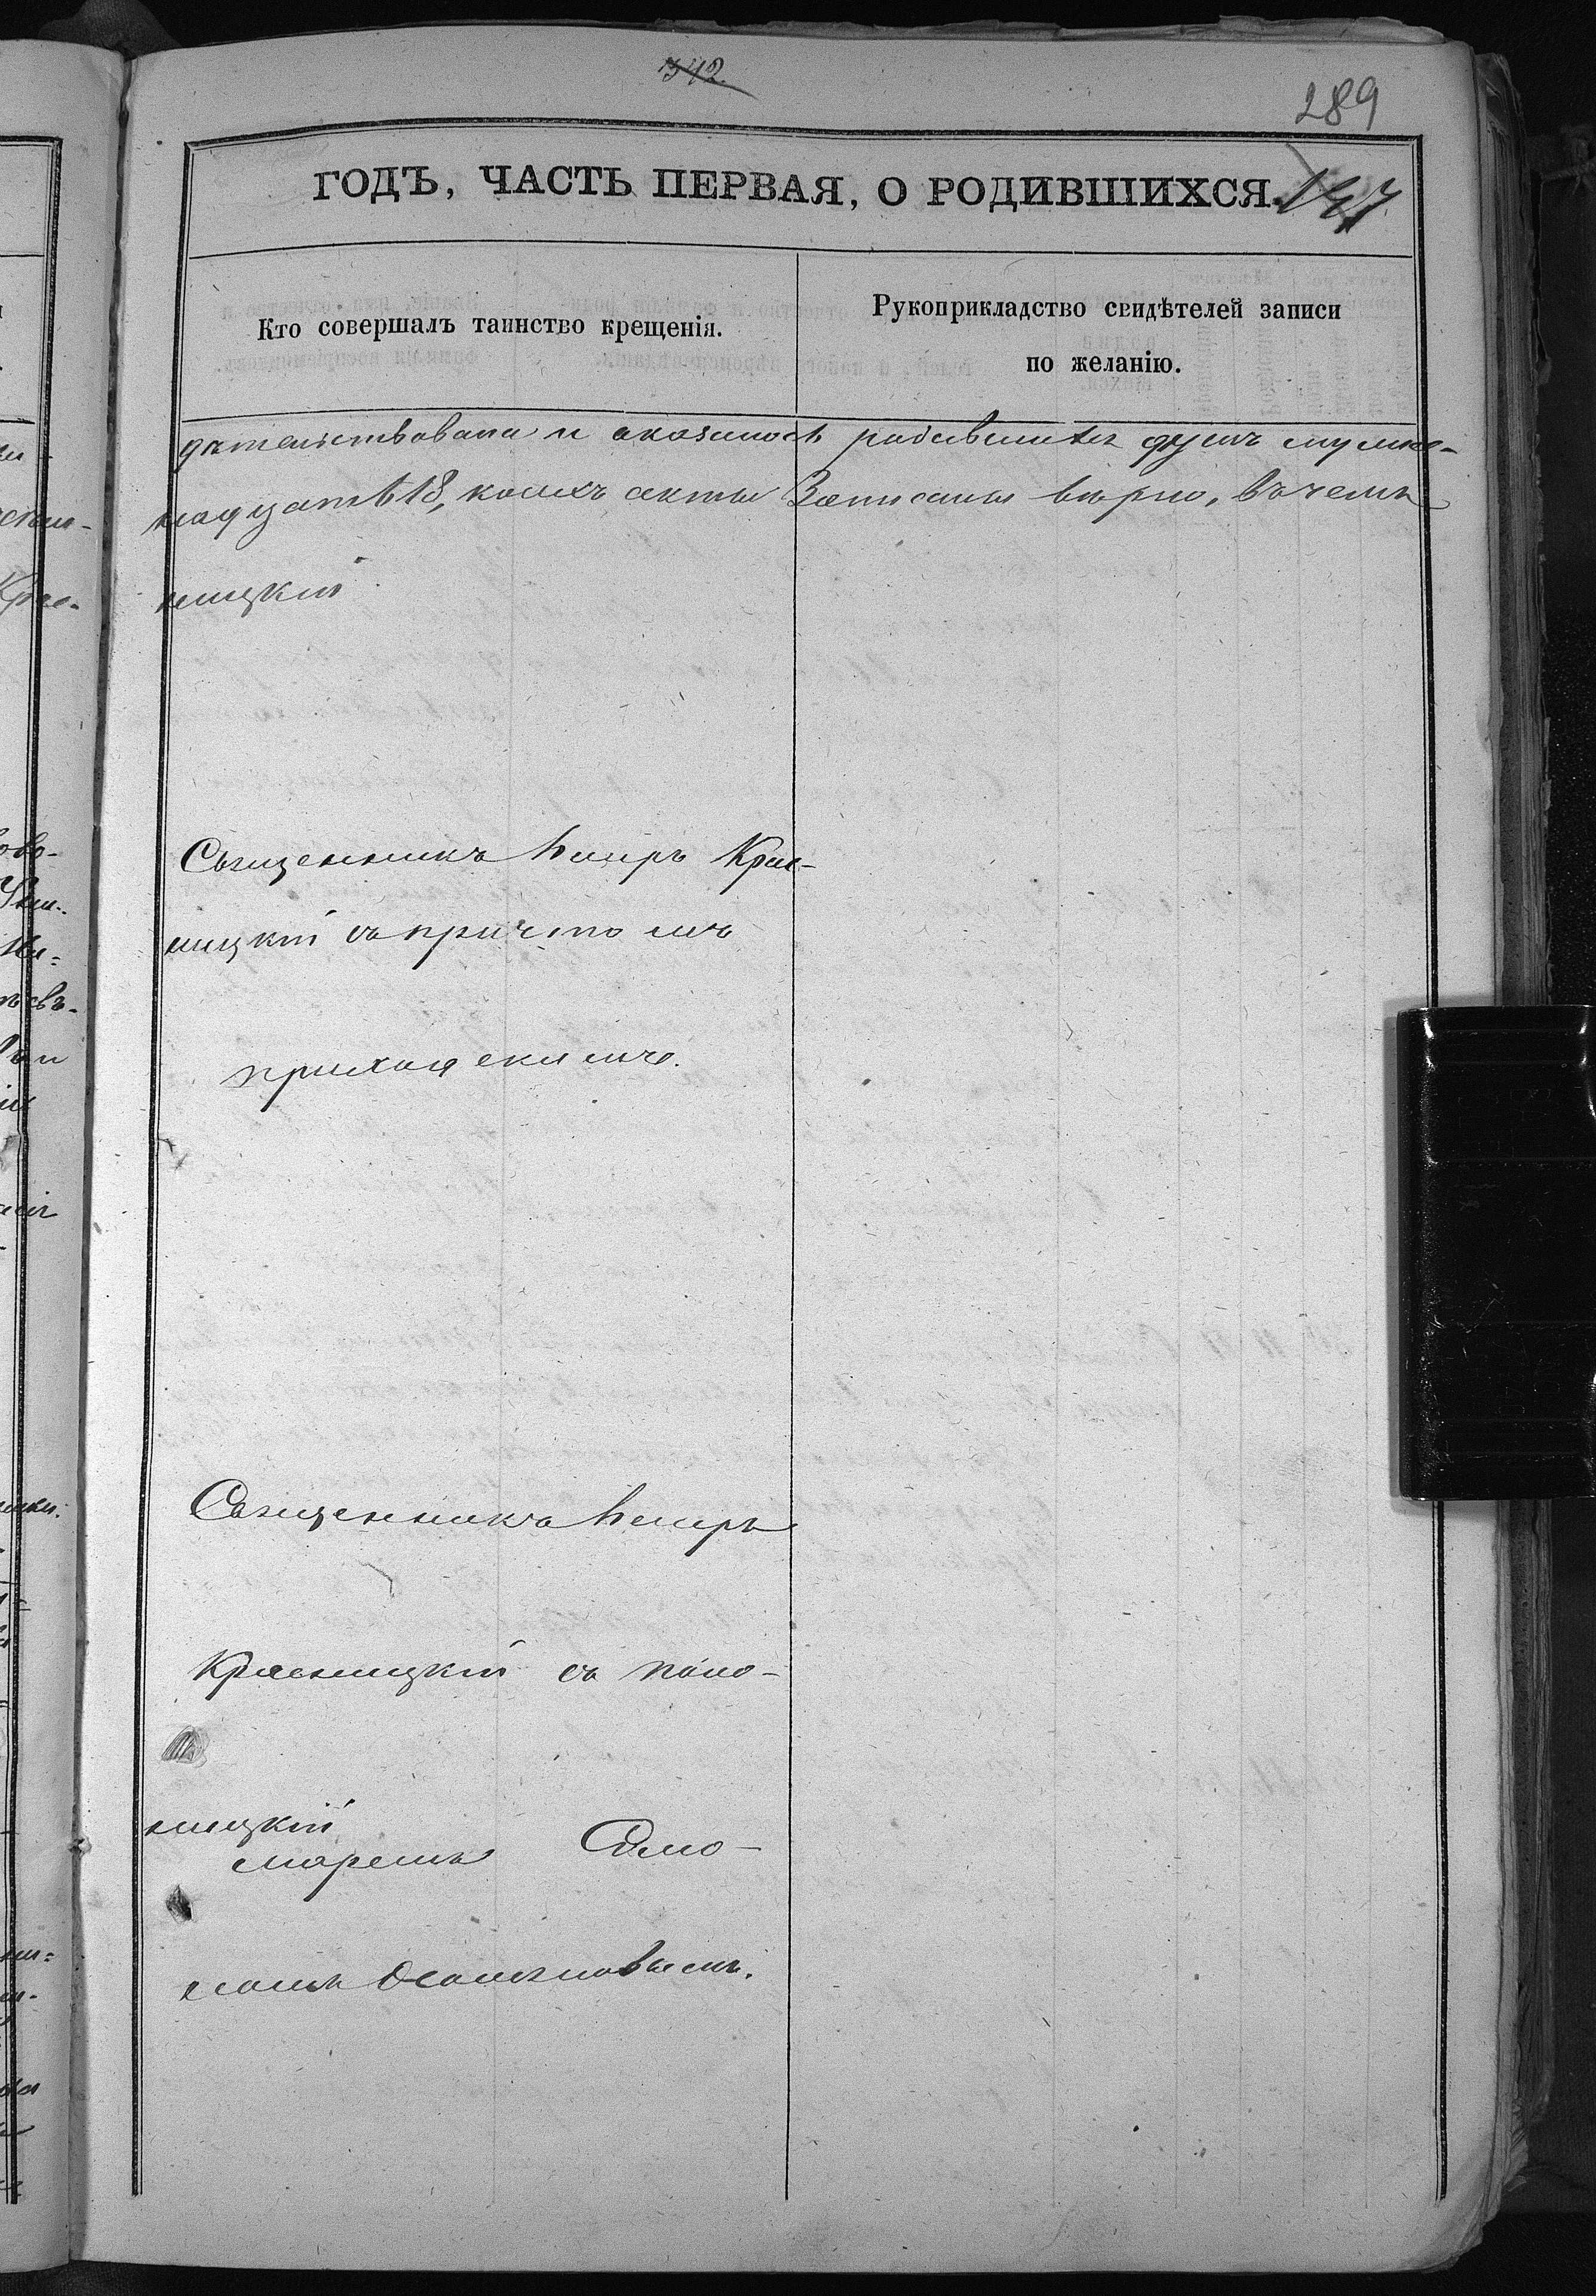 342
289
ГОДЪ, ЧАСТЬ ПЕРВАЯ, О РОДИВШИХСЯ.
147
Кто совершалъ таинство крещенія.
Рукоприкладство свидѣтелей записи
по желанію.
дѣтельствована и оказалось родившихся душъ муже-
надцать 18, коихъ акты Записаны вѣрно, въ чемъ
ницкій
Священникъ Петръ Крас-
ницкій съ причтомъ
приходскимъ.
Священникъ Петръ
Красницкій съ поно-
ницкій
маремъ Само-